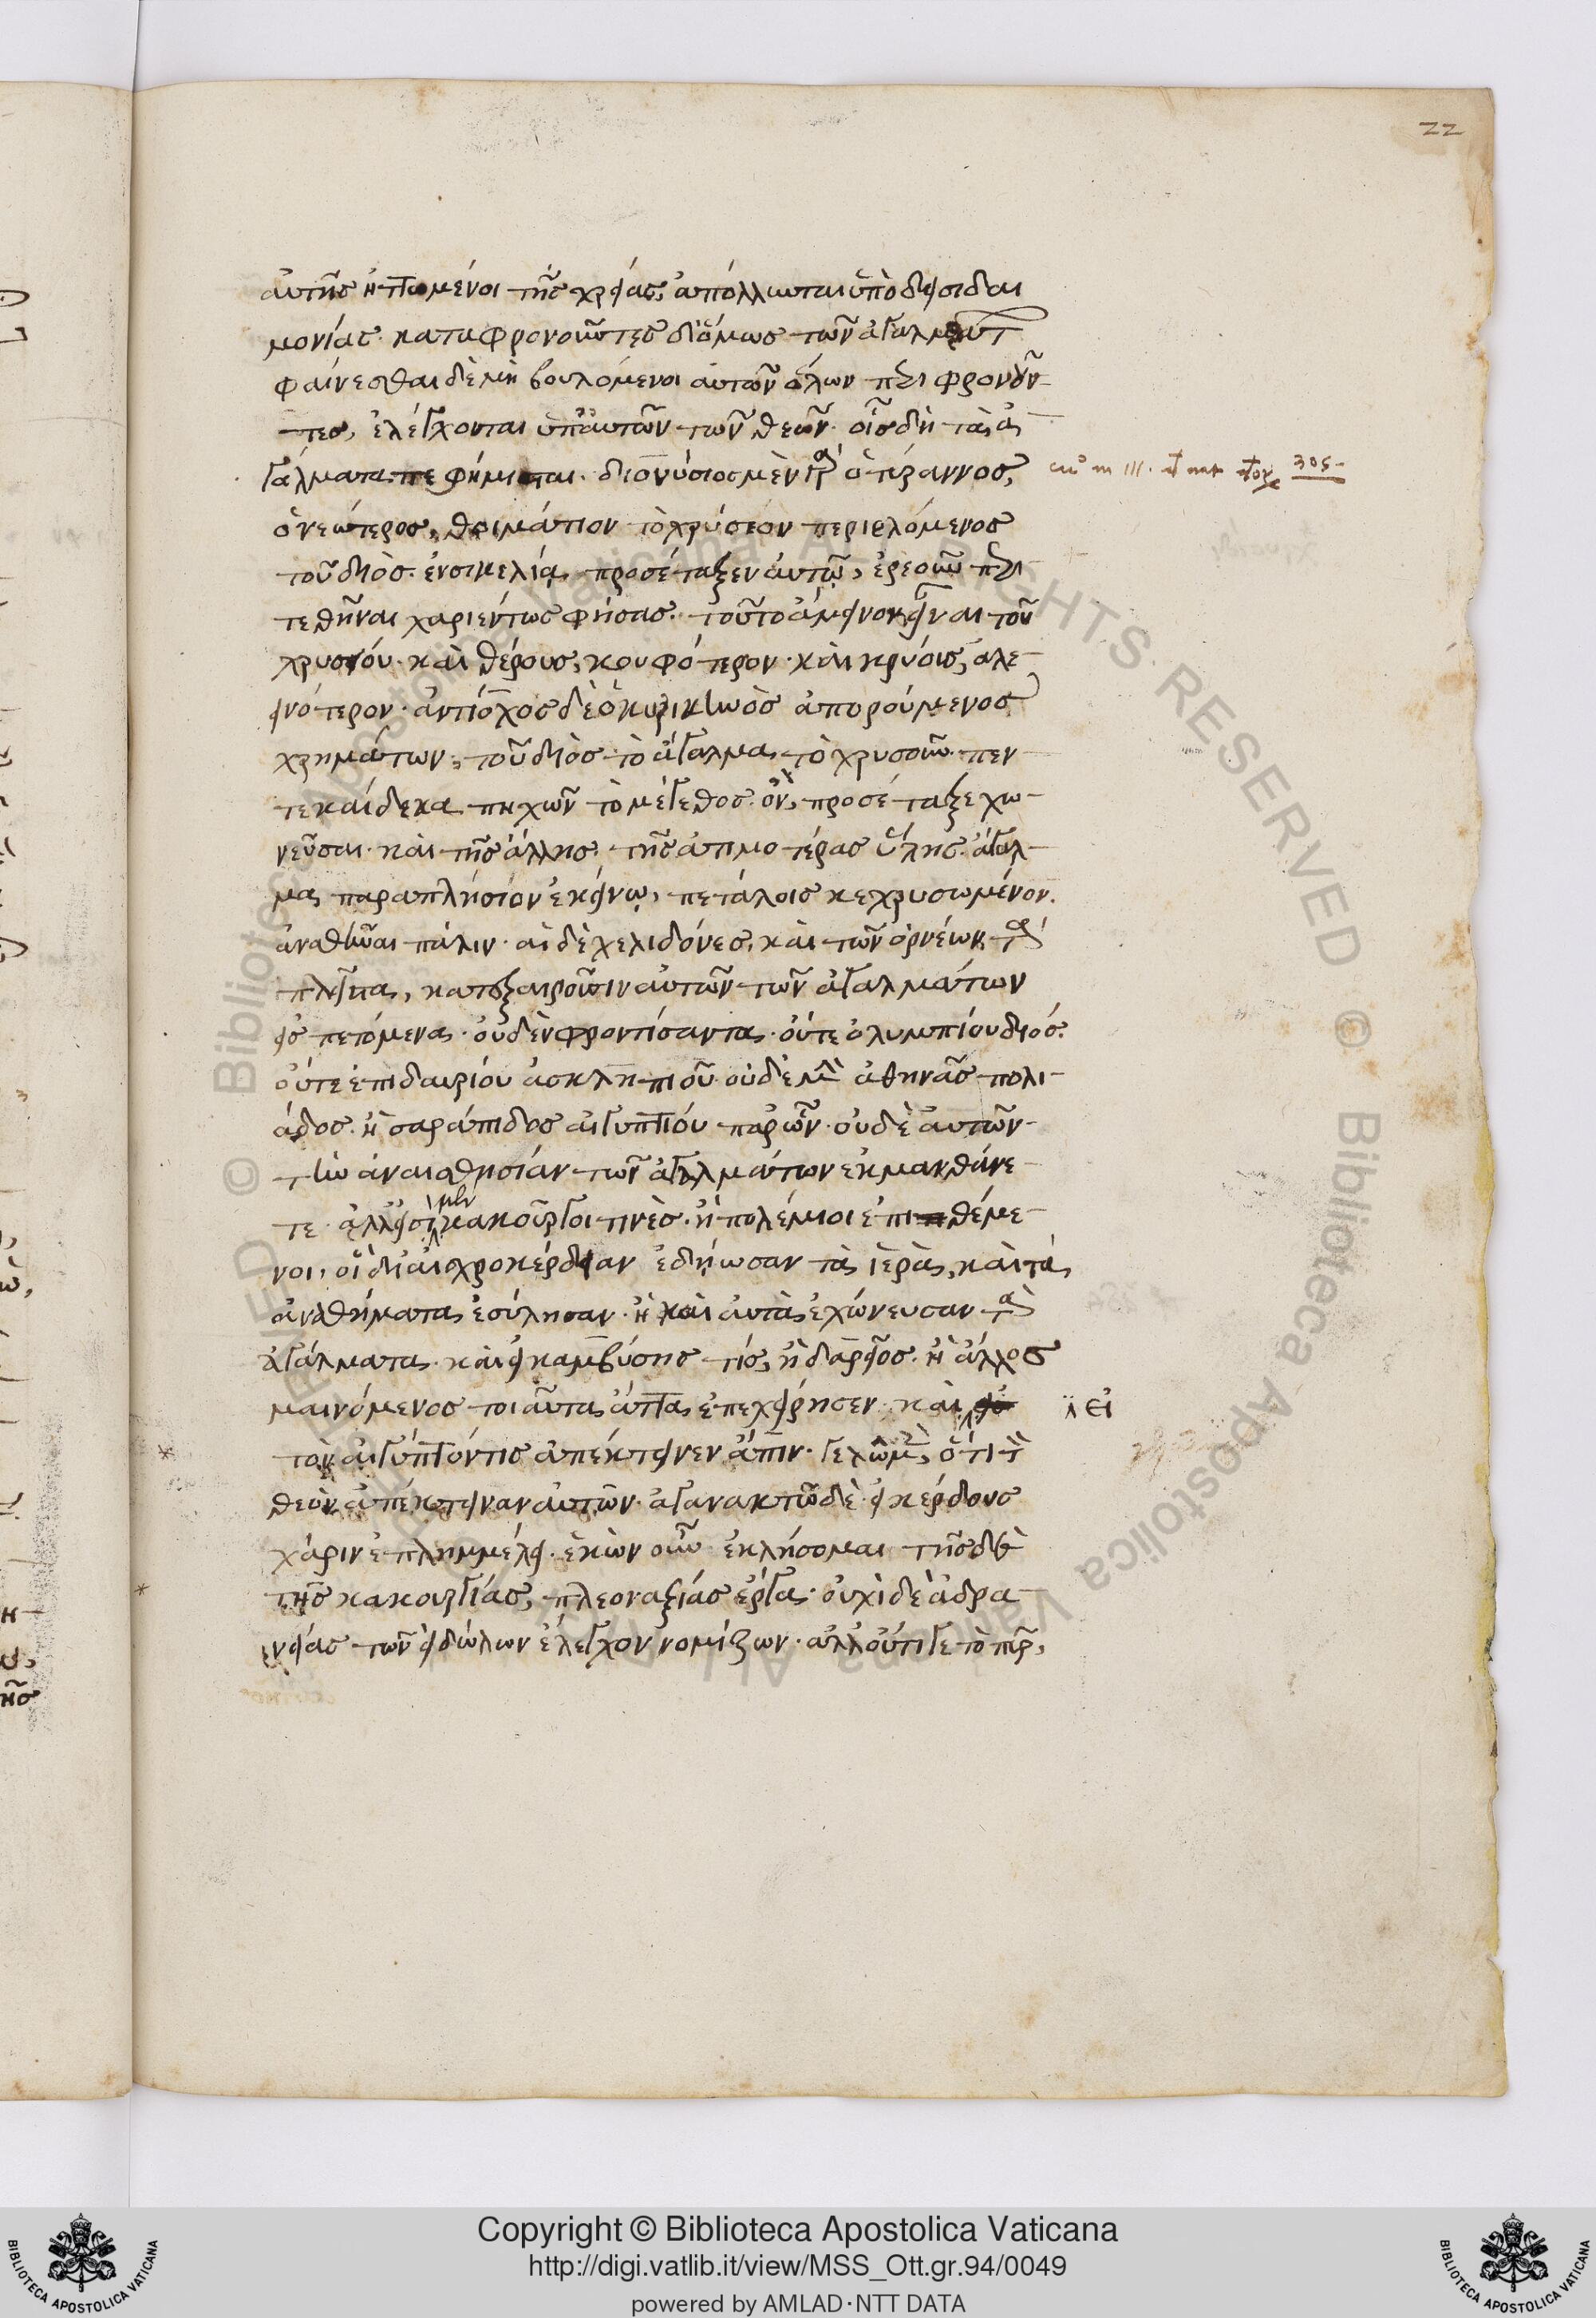 22
αὐτῆς ἡττωμένοι τῆς χρείας, ἀπόλλυνται ὑπὸ δεισιδαι
μονίας. καταφρονοῦντες δ' ὅμως τῶν ἀγαλμάτ
φαίνεσθαι δὲ μὴ βουλόμενοι αὐτῶν ὅλων περιφρονοῦν
τες, ἐλέγχονται ὑπ' αὐτῶν τῶν θεῶν. οἷς δὴ τὰ ἀ
γάλματα πεφήμισται. διονύσιος μὲν γὰρ ὁ τύραννος,
ὁ νεώτερος, θοιμάτιον τὸ χρύσεον περιελόμενος
τοῦ διὸς ἐν σικελία, προσέταξεν αὐτῷ, ἐρεοῦν περι
τεθῆναι χαριέντως φήσας. τοῦτο ἄμεινον εἶναι τοῦ
χρυσεόυ. καὶ θέρους, κουφότερον. καὶ κρύους, αλε
εινότερον. ἀντίοχος δὲ ὁ κυζικηνὸς ἀπορούμενος
χρημάτων, τοῦ διὸς τὸ ἄγαλμα τὸ χρυσοῦν πεν
τεκαίδεκα πηχῶν τὸ μέγεθος ὂν, προσέταξε χω
νεῦσαι. καὶ τῆς ἄλλης τῆς ἀτιμοτέρας ὕλης. ἄγαλ
μα παραπλήσιον ἐκείνῳ, πετάλοις κεχρυσωμένον.
ἀναθεῖναι πάλιν. αἱ δὲ χελιδόνες, καὶ τῶν ὀρνέων τὰ
πλεῖστα, κατεξαιροῦσιν αὐτῶν τῶν ἀγαλμάτων
εἰσπετόμενα. οὐδὲν φροντίσαντα. οὔτε ολυμπίου διός.
οὔτε ἐπιδαυρίου ἀσκληπιοῦ. οὐδὲ μὴν ἀθηνᾶς πολι
άδος. ἢ σαράπιδος αἰγυπτίου. παρ' ὧν οὐδὲ αὐτῶν
τὴν ἀναισθησίαν τῶν ἀγαλμάτων ἐκμανθάνε
τε. ἀλλ' εἰσὶ μὲν κακοῦργοι τινὲς. ἢ πολέμιοι ἐπιθέμε
νοι, οἳ δι' αἰσχροκέρδειαν ἐδήωσαν τὰ ἱερὰ, καὶ τὰ
ἀναθήματα ἐσύλησαν. ἢ καὶ αὐτὰ ἐχώνευσαν τὰ
ἀγάλματα. καὶ εἰ καμβύσης τίς, ἢ δαρεῖος. ἢ ἄλλος
μαινόμενος τοιαῦτα ἄττα ἐπεχείρησεν. καὶ εἰ
λ εἰ
τὸν αἰγύπτιόν τις ἀπέκτεινεν ἄπιν. γελῶ μὲν, ὅτι τὸν
θεὸν ἀπέκτειναν αὐτῶν. ἀγανακτῶ δὲ εἰ κέρδους
χάριν ἐπλημμέλει. ἑκὼν οὖν ἐκλήσομαι τῆσδε
τῆς κακουργίας, πλεοναξίας ἔργα. οὐχὶ δὲ ἀδρα
νείας τῶν εἰδώλων ἔλεγχον νομίζων. ἀλλ' οὔτι γε τὸ πῦρ,
Copyright © Biblioteca Apostolica Vaticana
http://digi.vatlib.it/view/MSS_Ott.gr.94/0049
powered by AMLAD·NTT DATA